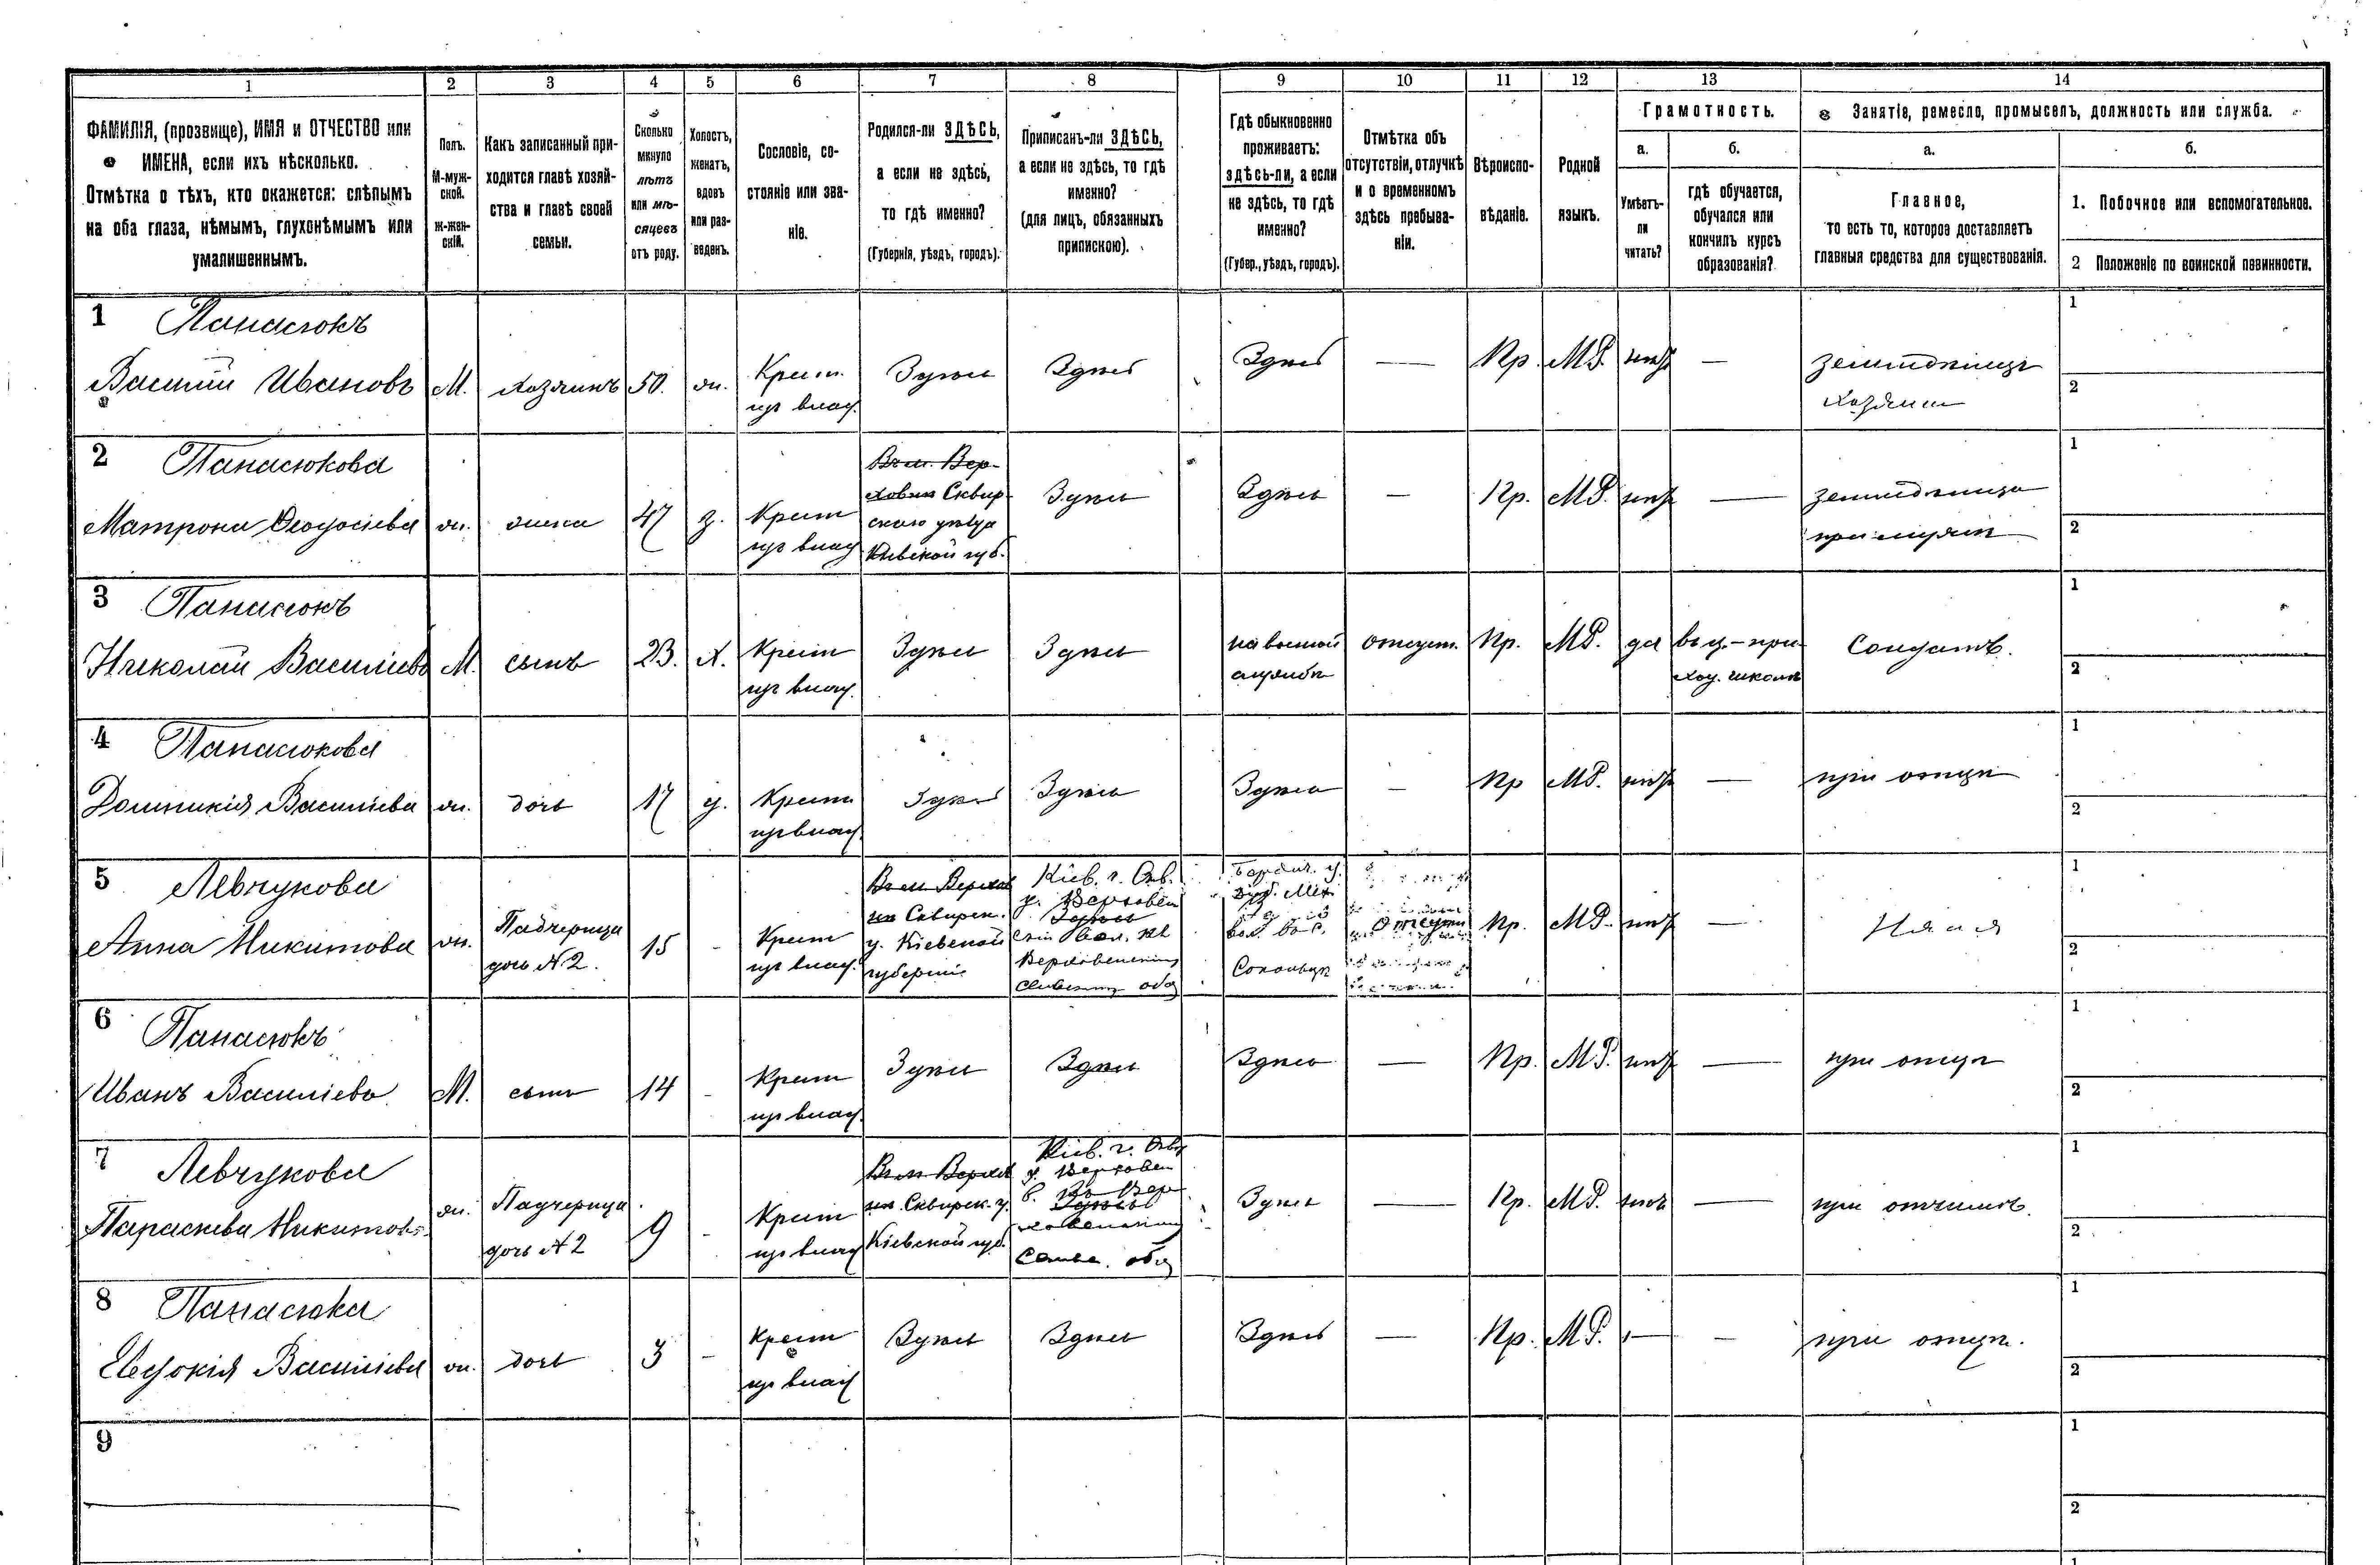 1 2 3 4 5 6 7 8 9 10 11 12 13 14
ФАМИЛІЯ, (прозвище), ИМЯ и ОТЧЕСТВО или
ИМЕНА, если ихъ нѣсколько.
Отмѣтка о тѣхъ, кто окажется: слѣпымъ
на оба глаза, нѣмымъ, глухонѣмымъ или
умалишеннымъ.
Полъ.
М-муж-
ской.
ж-жен-
скій.
Какъ записанный при-
ходится главѣ хозяй-
ства и главѣ своей
семьи.
Сколько
минуло
лѣтъ
или мѣ-
сяцевъ
отъ роду.
Холостъ,
женатъ,
вдовъ
или раз-
веденъ.
Сословіе, со-
стояніе или зва-
ніе.
Родился-ли ЗДѢСЬ,
а если не здѣсь,
то гдѣ именно?
(Губернія, уѣздъ, городъ).
Приписанъ-ли ЗДѢСЬ,
а если не здѣсь, то гдѣ
именно?
(для лицъ, обязанныхъ
припискою).
Гдѣ обыкновенно
проживаетъ:
здѣсь-ли, а если
не здѣсь, то гдѣ
именно?
(Губер., уѣздъ, городъ).
Отмѣтка объ
отсутствіи, отлучкѣ
и о временномъ
здѣсь пребыва-
ніи.
Вѣроиспо-
вѣданіе.
Родной
языкъ.
Грамотность.
а.
Умѣетъ-
ли
читать?
б.
гдѣ обучается,
обучался или
кончилъ курсъ
образованія?
Занятіе, ремесло, промыселъ, должность или служба.
а.
Главное,
то есть то, которое доставляетъ
главныя средства для существованія.
б.
1. Побочное или вспомогательное.
2 Положеніе по воинской повинности.
1 Панасюкъ
Василій Ивановъ
М.
хозяинъ
50.
ж.
Крест.
из влад.
Здѣсь
Здѣсь
Здѣсь
—
Пр.
М.Р.
нѣт
—
земледѣлецъ
хозяин
1
2
2 Панасюкова
Матрона Феодосіева
ж.
жена
47
з.
Крест
из влад
Сквир-
скаго уѣзда
Кіевской губ.
Здѣсь
Здѣсь
—
Пр.
М.Р.
нѣт
—
при мужѣ
1
2
3 Панасюкъ
Николай Василіевъ
М
сынъ
23.
х.
Крест
из влад.
Здѣсь
Здѣсь
на военной
службѣ
отсут.
Пр.
М.Р.
да
въ ц.-при-
ход. школѣ
Солдатъ.
1
2
4 Панасюкова
Домникія Василіева
ж.
дочь
17
д.
Крест
из влад.
Здѣсь
Здѣсь
Здѣсь
—
Пр
М.Р.
нѣт
—
при отцѣ
1
2
5 Левчукова
Анна Никитова
ж.
Падчерица
дочь № 2.
15
-
Крест
из влад.
Сквирск.
у. Кіевской
губерніи
Кіев. г. Скв.
Пр.
М.Р.
нѣт
—
Няня
1
2
6 Панасюкъ
Иванъ Василіевъ
М.
сынъ
14
-
Крест
из влад.
Здѣсь
Здѣсь
Здѣсь
—
Пр.
М.Р.
нѣт
—
при отцѣ
1
2
7 Левчукова
Параскева Никитова
ж.
Падчерица
дочь № 2
9
-
Крест
из влад
Сквирск. у.
Кіевской губ.
Кіев. г. Скв
Здѣсь
—
Пр.
М.Р.
нѣт
—
при отчимѣ.
1
2
8 Панасюка
Евдокія Василіева
ж.
дочь
3
-
Крест
из влад
Здѣсь
Здѣсь
Здѣсь
—
Пр.
М.Р.
—
—
при отцѣ.
1
2
9
1
2
1